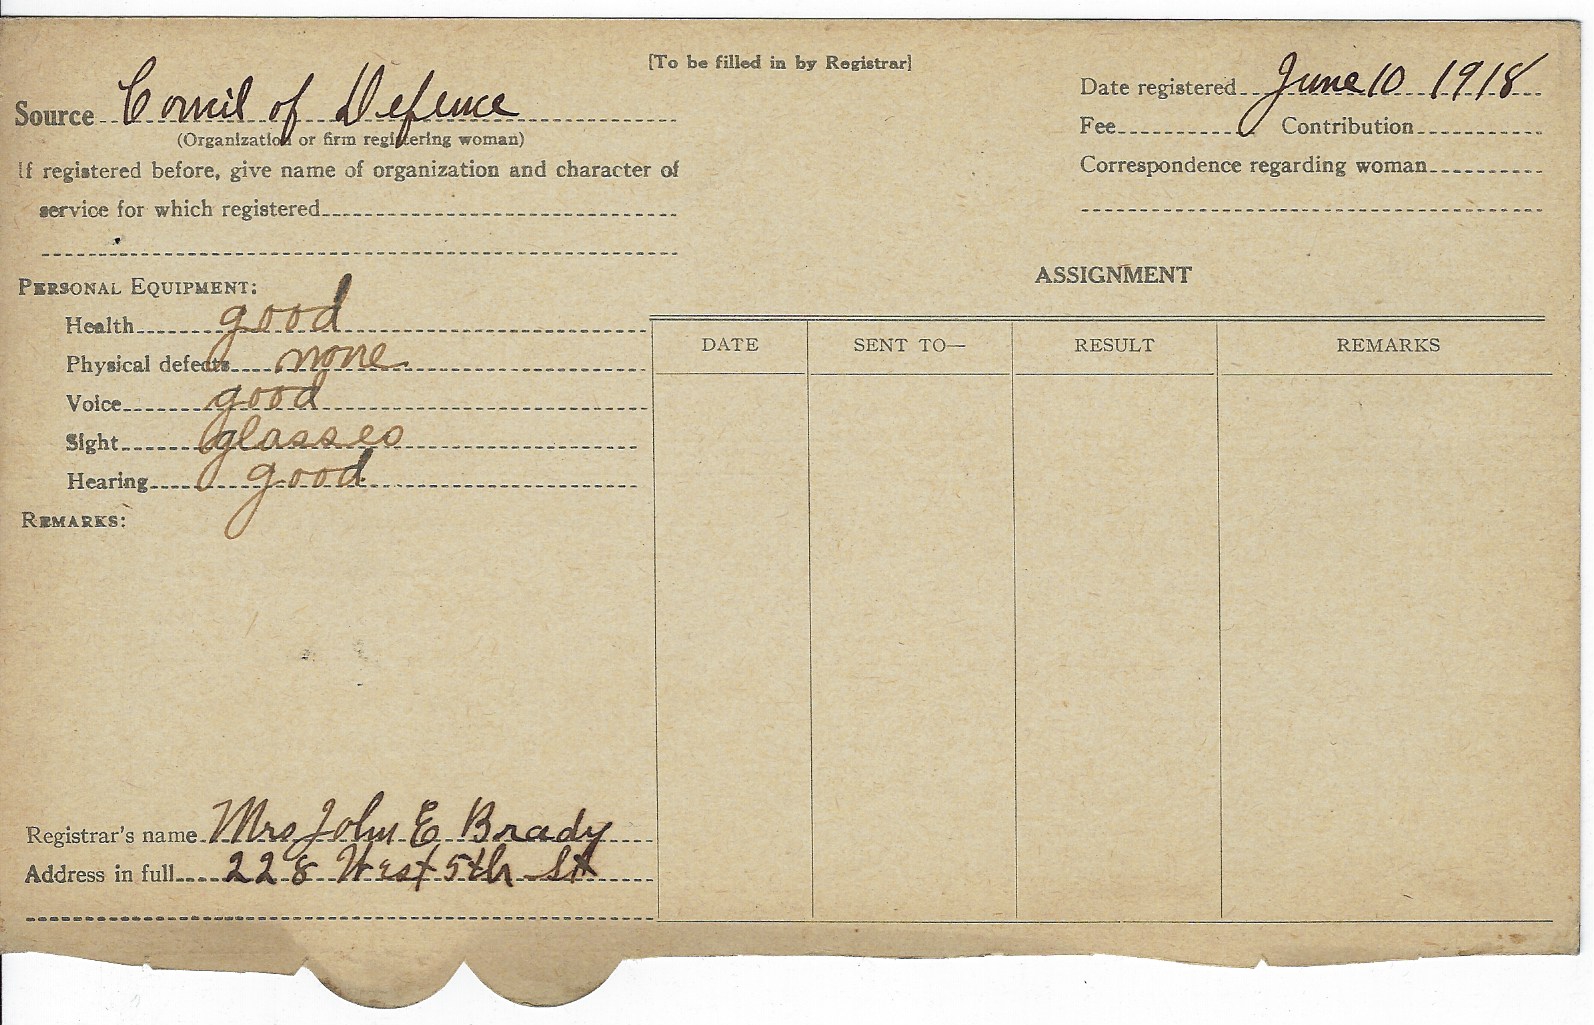 [To be filled in by Registrar]
Source Council of Defence
(Organization or firm registering woman)
If registered before, give name of organization and character of
service for which registered
Date registered June 10 1918
Fee Contribution
Correspondence regarding woman
PERSONAL EQUIPMENT:
Health good
Physical defects none
Voice good
Sight glasses
Hearing good
REMARKS:
ASSIGNMENT
DATE SENT TO— RESULT REMARKS
Registrar's name Mrs John E Brady
Address in full 228 West 5th St